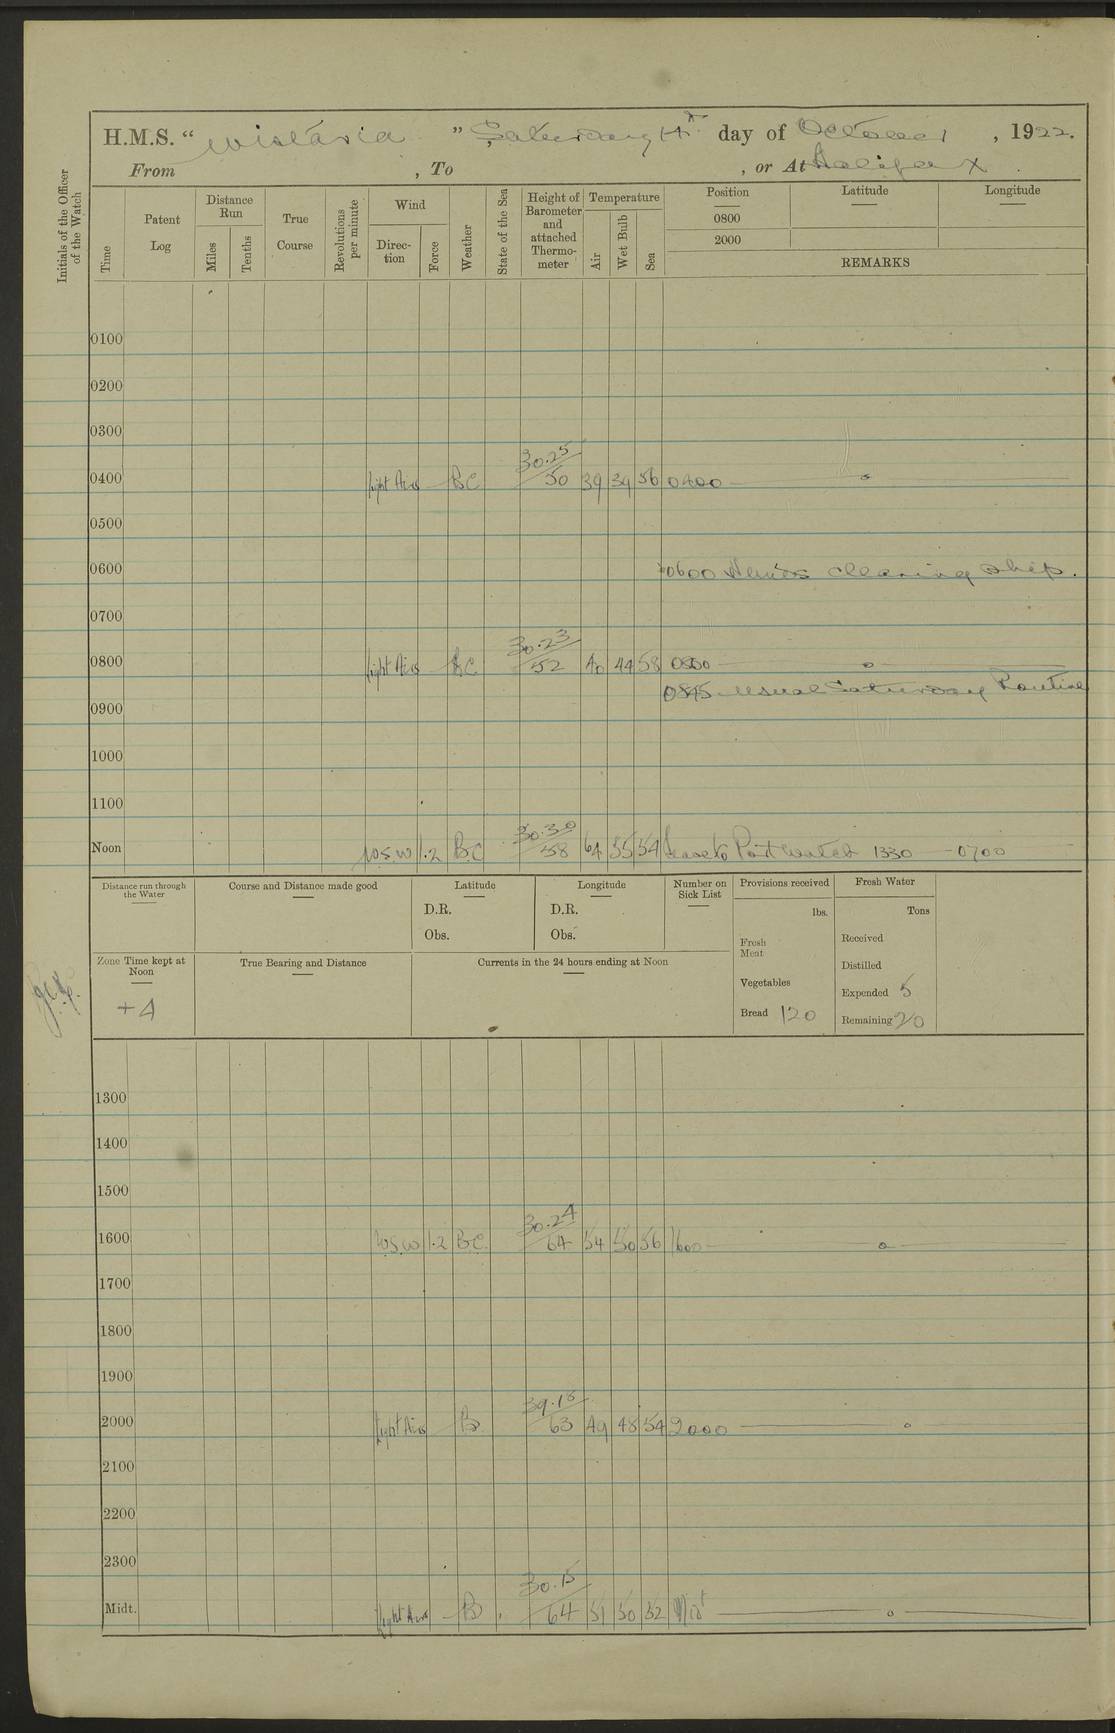 H.M.S. “ Wistaria ” Saturday 14th day of October , 1922.
From , To , or At Halifax .
Initials of the Officer of the Watch
Time
Patent Log
Distance Run
Miles
Tenths
True Course
Revolutions per minute
Wind
Direction
Force
Weather
State of the Sea
Height of Barometer and attached Thermometer
Temperature
Air
Wet Bulb
Sea
Position Latitude Longitude
0800
2000
REMARKS
0100
0200
0300
0400 light Airs — BC 30.25 / 50 39 39 56 0400 — o —
0500
0600 0600 Hands cleaning ship.
0700
0800 light Airs — BC 30.23 / 52 40 44 58 0800 — o —
0845 Usual Saturday Routine
0900
1000
1100
Noon W.S.W 1.2 BC 30.30 / 58 64 55 54 Leave to Port watch 1330 - 0700
Distance run through the Water
Course and Distance made good
Latitude
D.R.
Obs.
Longitude
D.R.
Obs.
Number on Sick List
Provisions received
lbs.
Fresh Meat
Vegetables
Bread 120
Fresh Water
Tons
Received
Distilled
Expended 5
Remaining 20
Zone Time kept at Noon
+4
True Bearing and Distance
Currents in the 24 hours ending at Noon
1300
1400
1500
1600 W.S.W 1.2 BC. 30.24 / 64 54 50 56 1600 — o —
1700
1800
1900
2000 light Airs B 30.18 / 63 49 48 54 2000 — o
2100
2200
2300
Midt. light Airs — B 30.15 / 64 51 50 52 Midt — o —